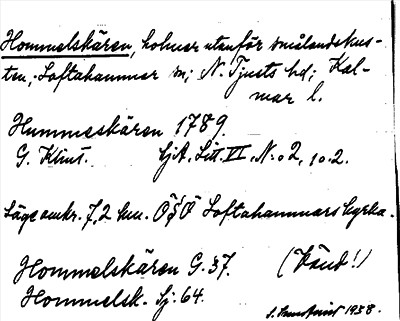 Hommelskären, holmar utanför smålandskus-
ten; Loftahammar sn; N. Tjusts hd; Kal-
mar l.
Hummeskären 1789.
G. Klint. Sjk. Litt. VI. N:o 2, 10.2.
Läge omkr. 7,2 km. OSO Loftahammars kyrka.
Hommelskären G. 37. (Känd!)
Hommelsk. Sj. 64.
1938.